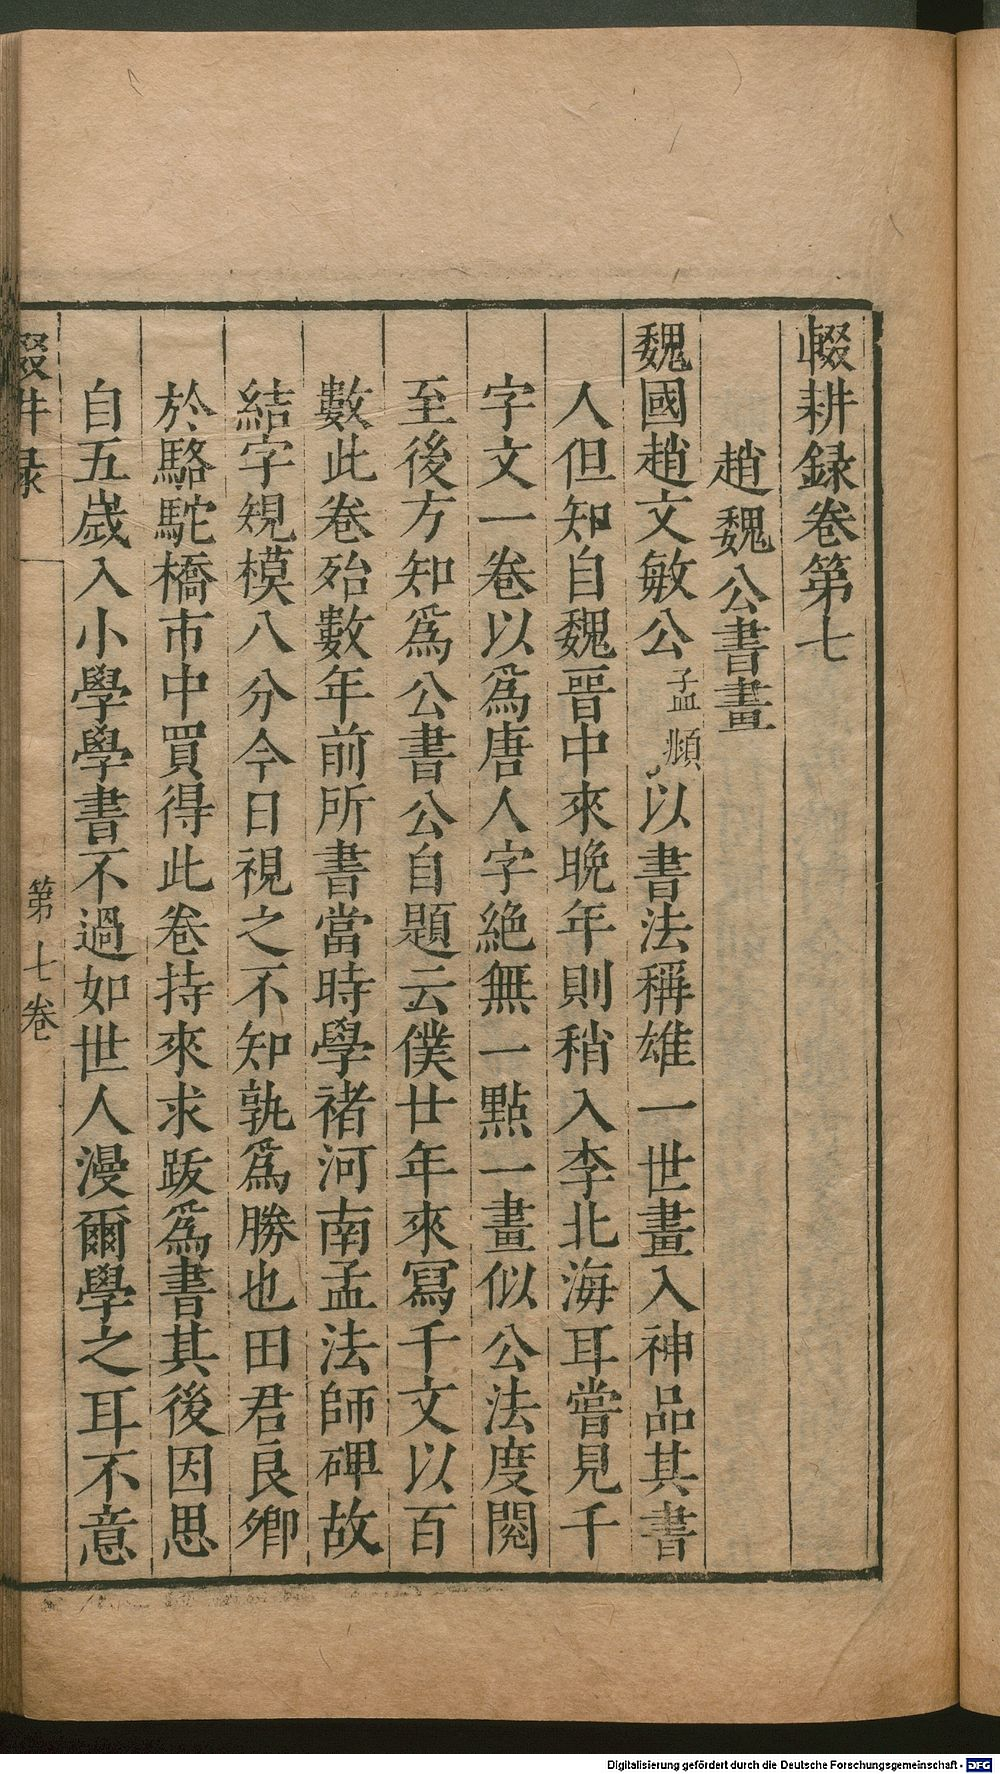 輟耕録卷第七
趙魏公書畫
魏國趙文敏公孟頫以書法稱雄一世畫入神品其書
人但知自魏晉中來晚年則稍入李北海耳嘗見千
字文一卷以爲唐人字絶無一點一畫似公法度閱
至後方知爲公書公自題云僕廿年來寫千文以百
數此卷殆數年前所書當時學褚河南孟法師碑故
結字規模八分今日視之不知孰爲勝也田君良卿
於駱駝橋市中買得此卷持來求跋爲書其後因思
自五歲入小學學書不過如世人漫爾學之耳不意
輟耕録
第七卷
Digitalisierung gefördert durch die Deutsche Forschungsgemeinschaft - DFG